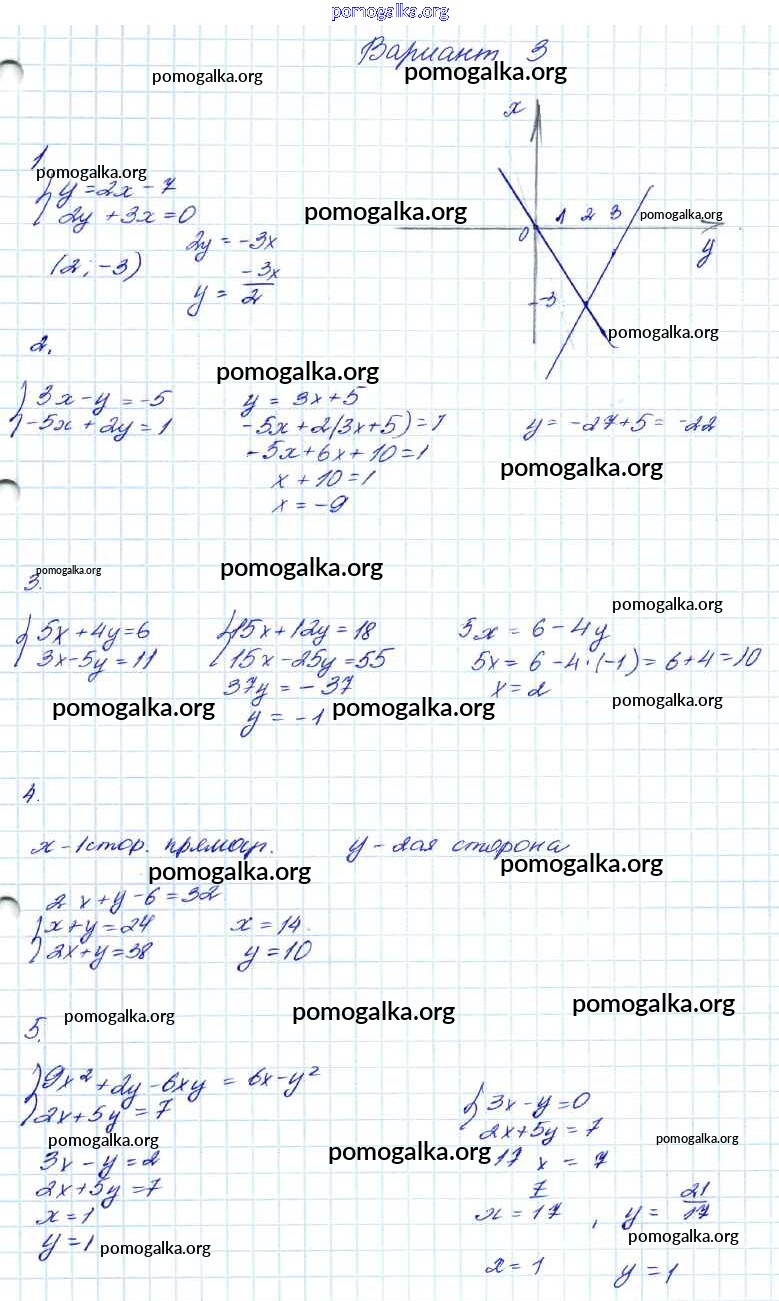 pomogalka.org
Вариант 3
pomogalka.org pomogalka.org
x
1 pomogalka.org
{ y = 2x - 7
2y + 3x = 0
pomogalka.org
0 1 2 3 pomogalka.org
y
2y = -3x
(2; -3)
y = -3x/2
-3
pomogalka.org
2.
pomogalka.org
{ 3x - y = -5 y = 3x + 5
-5x + 2y = 1 -5x + 2(3x + 5) = 1 y = -27 + 5 = -22
-5x + 6x + 10 = 1
pomogalka.org
x + 10 = 1
x = -9
pomogalka.org pomogalka.org
3.
pomogalka.org
{ 5x + 4y = 6 { 15x + 12y = 18 5x = 6 - 4y
3x - 5y = 11 15x - 25y = 55 5x = 6 - 4·(-1) = 6 + 4 = 10
37y = -37 x = 2
pomogalka.org pomogalka.org pomogalka.org
y = -1
4.
x - 1 стор. прямоуг. y - 2ая сторона
pomogalka.org pomogalka.org
2x + y - 6 = 32
{ x + y = 24 x = 14
2x + y = 38 y = 10
5. pomogalka.org pomogalka.org pomogalka.org
{ 9x² + 2y - 6xy = 6x - y²
2x + 5y = 7
{ 3x - y = 0
2x + 5y = 7
pomogalka.org pomogalka.org pomogalka.org
3x - y = 2 17x = 7
2x + 5y = 7
x = 1 x = 7/17, y = 21/17
y = 1 pomogalka.org pomogalka.org
x = 1 y = 1